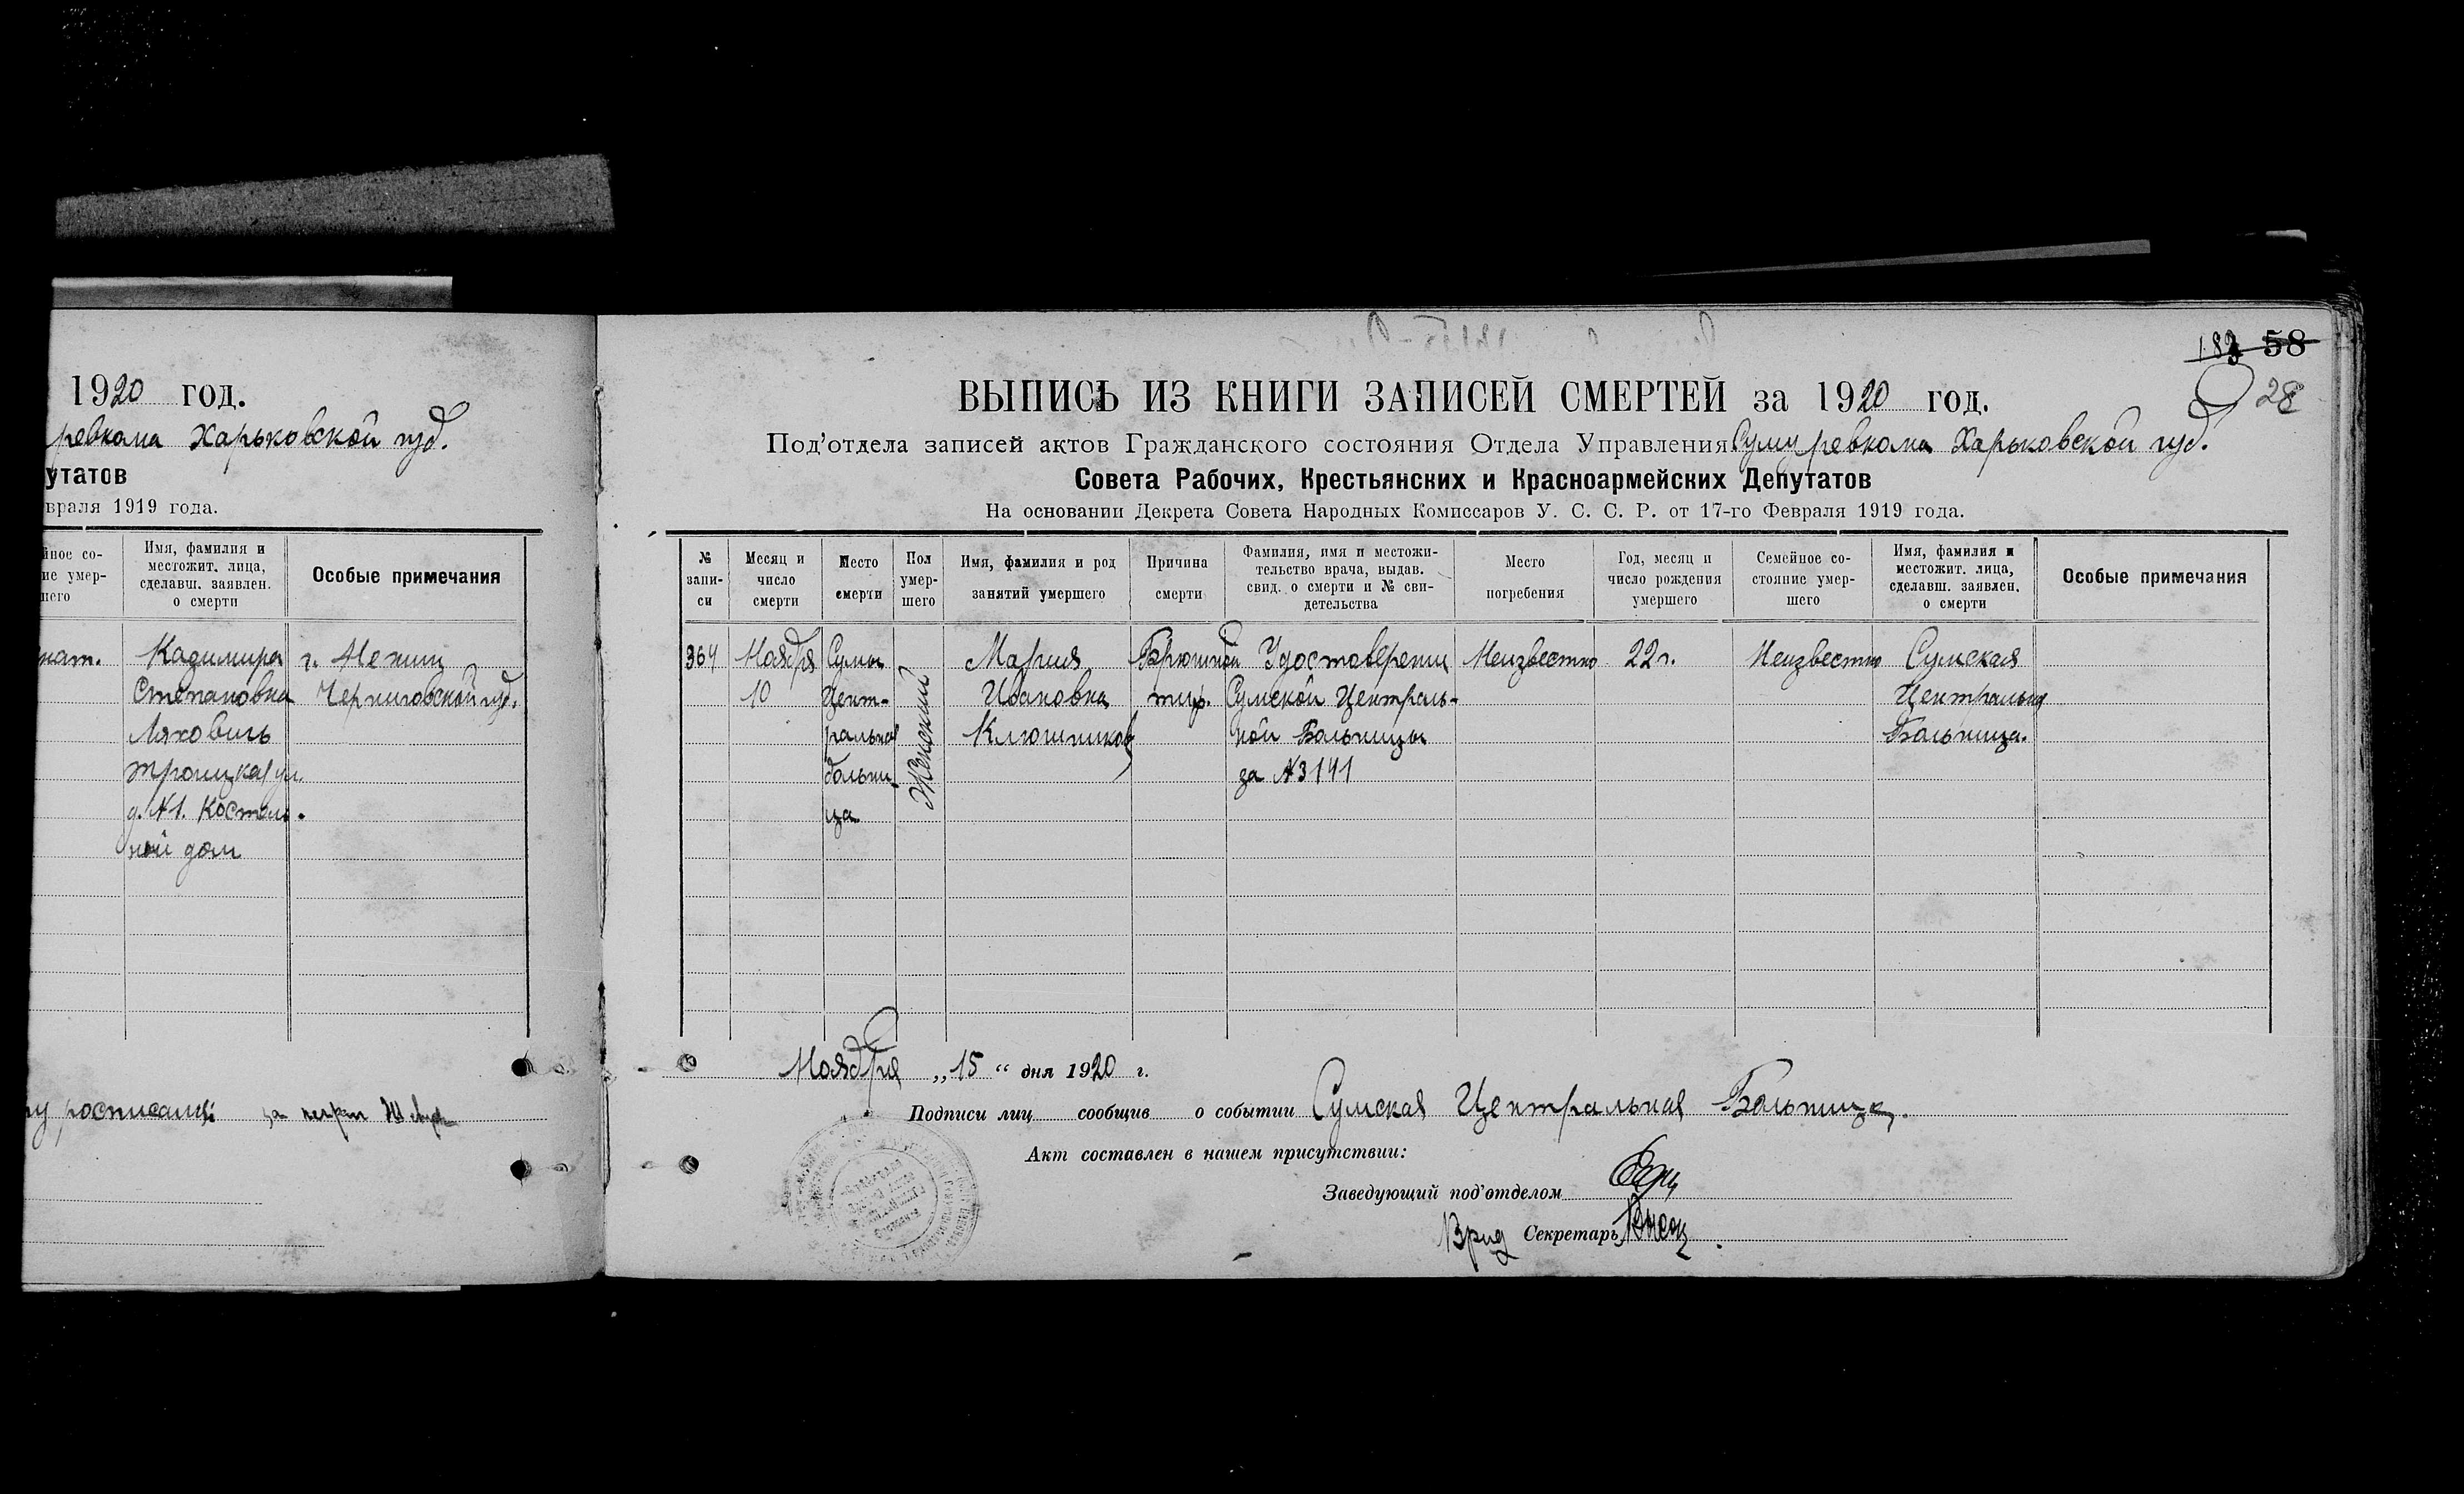 1920 год.
ревкома Харьковской губ.
утатов
враля 1919 года.
йное со-
ие умер-
шего
Имя, фамилия и
местожит. лица,
сделавш. заявлен.
о смерти
Особые примечания
Казимира
Степановна
Ляхович
Троицкая ул.
д. №1. Костель-
ной дом
г. Нежин
Черниговской губ.
росписался:
58
28
ВЫПИСЬ ИЗ КНИГИ ЗАПИСЕЙ СМЕРТЕЙ за 1920 год.
Под'отдела записей актов Гражданского состояния Отдела Управления Суму ревкома Харьковской губ.
Совета Рабочих, Крестьянских и Красноармейских Депутатов
На основании Декрета Совета Народных Комиссаров У. С. С. Р. от 17-го Февраля 1919 года.
№
запи-
си
Месяц и
число
смерти
Место
смерти
Пол
умер-
шего
Имя, фамилия и род
занятий умершего
Причина
смерти
Фамилия, имя и местожи-
тельство врача, выдав.
свид. о смерти и № сви-
детельства
Место
погребения
Год, месяц и
число рождения
умершего
Семейное со-
стояние умер-
шего
Имя, фамилия и
местожит. лица,
сделавш. заявлен.
о смерти
Особые примечания
364
Ноября
10
Сумы
Цент-
ральная
больни
ца
Женский
Мария
Ивановна
Ключникова
Брюшной
тиф.
Удостоверении
Сумской Централь-
ной Больницы
за №3141
Неизвестно
22 г.
Неизвестно
Сумская
Центральная
Больница.
Ноября „15“ дня 1920 г.
Подписи лиц сообщив о событии Сумская Центральная Больница.
Акт составлен в нашем присутствии:
Заведующий под'отделом
Врид Секретарь